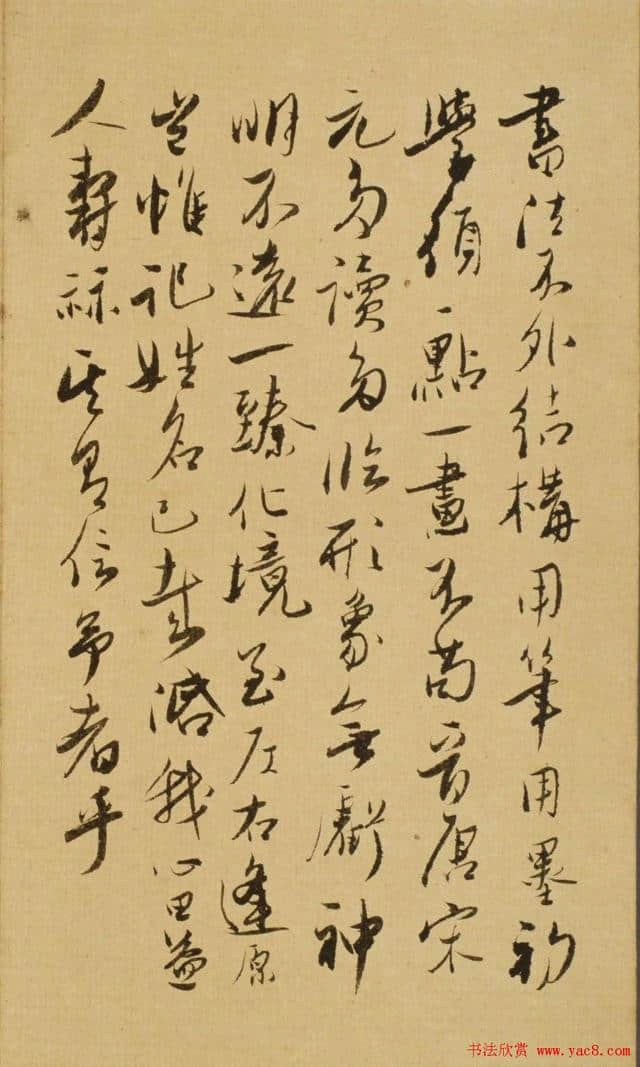 書法不外結構用筆用墨初
學須一點一畫不苟晉唐宋
元多讀多臨形象無虧神
明不遠一臻化境至左右逢原
豈惟記姓名已哉濬我心田益
人壽祿其有信予者乎
书法欣赏 www.yac8.com